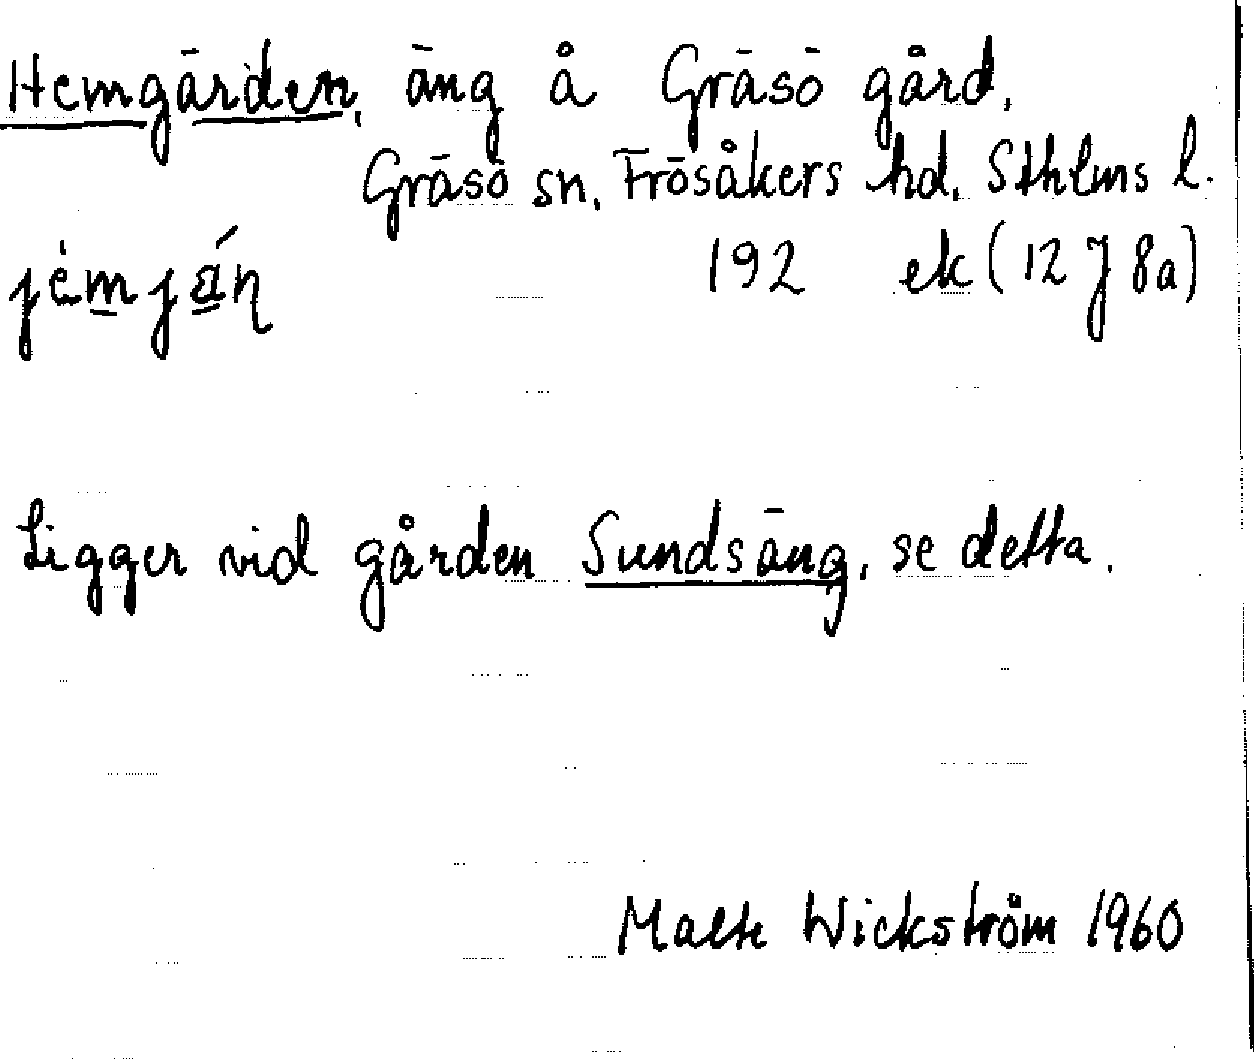 Hemgärden, äng å Gräsö gård,
Gräsö sn, Frösåkers hd, Sthlms l.
jèmjáṇ 192 ek (12 J 8a)
Ligger vid gården Sundsäng, se detta.
Malte Wickström 1960